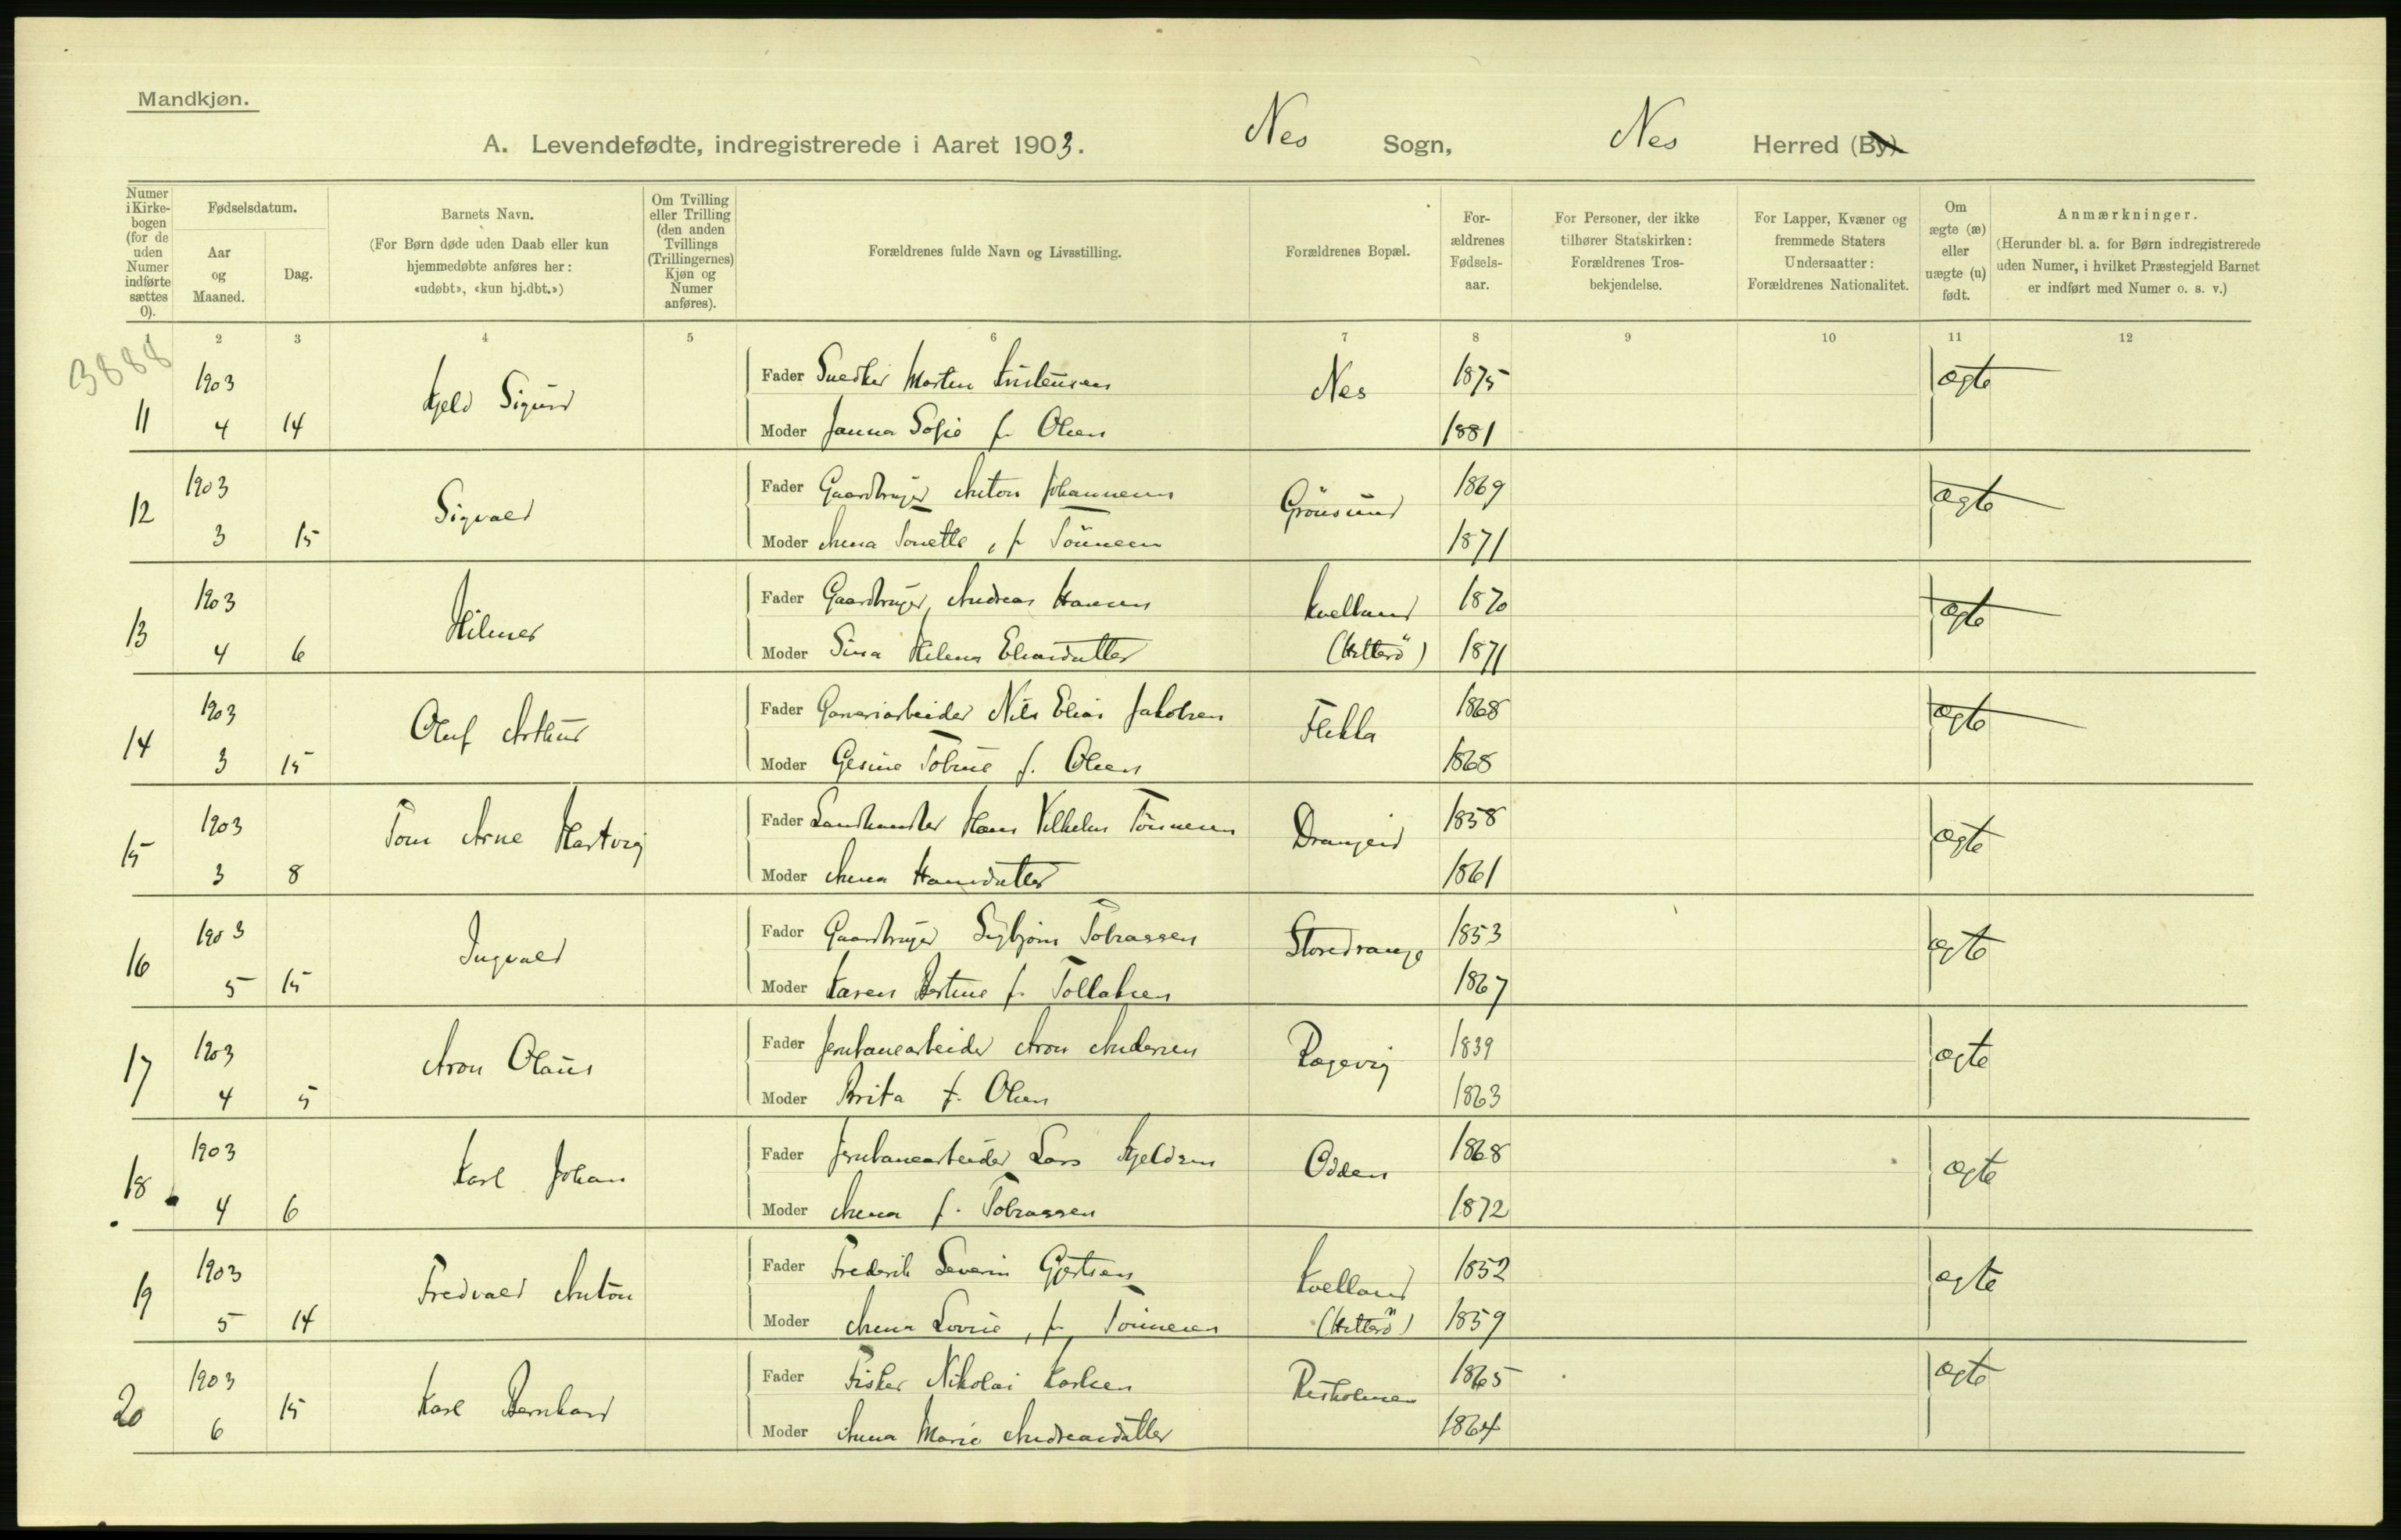 Mandkjøn.
A. Levendefødte, indregistrerede i Aaret 1903. Nes Sogn, Nes Herred (By)
Numer i Kirke-bogen (for de uden Numer indførte sættes 0).
Fødselsdatum.
Aar og Maaned.
Dag.
Barnets Navn.
(For Børn døde uden Daab eller kun hjemmedøbte anføres her: «udøbt», «kun hj.dbt.»)
Om Tvilling eller Trilling (den anden Tvillings (Trillingernes) Kjøn og Numer anføres).
Forældrenes fulde Navn og Livsstilling.
Forældrenes Bopæl.
For-ældrenes Fødsels-aar.
For Personer, der ikke tilhører Statskirken: Forældrenes Tros-bekjendelse.
For Lapper, Kvæner og fremmede Staters Undersaatter: Forældrenes Nationalitet.
Om ægte (æ) eller uægte (u) født.
Anmærkninger.
(Herunder bl. a. for Børn indregistrerede uden Numer, i hvilket Præstegjeld Barnet er indført med Numer o. s. v.)
1 2 3 4 5 6 7 8 9 10 11 12
3888
11 1903 4 14 Kjeld Sigurd
Fader Snedker Morten Kristensen Nes 1875 ægte
Moder Janna Sofie f. Olsen 1881
12 1903 3 15 Sigvald
Fader Gaardbruger Anton Johannesen Grönsund 1869 ægte
Moder Anna Tonette, f. Tönnesen 1871
13 1903 4 6 Hilmer
Fader Gaardbruger Andreas Hansen Kvelland 1870 ægte
Moder Sina Helena Eliasdatter (Hitterö) 1871
14 1903 3 15 Oluf Arthur
Fader Garveriarbeider Nils Elias Jakobsen Flekka 1868 ægte
Moder Gesine Tobine f. Olsen 1868
15 1903 3 8 Tom Arne Hartvig
Fader Landhandler Hans Vilhelm Tönnesen Drangeid 1858 ægte
Moder Anna Hansdatter 1861
16 1903 5 15 Ingvald
Fader Gaardbruger Sigbjørn Tobiassen Storedrange 1853 ægte
Moder Karen Bertine f. Tollaksen 1867
17 1903 4 5 Aron Olaus
Fader Jernbanearbeider Aron Andersen Rægevig 1839 ægte
Moder Brita f. Olsen 1863
18 1903 4 6 Karl Johan
Fader Jernbanearbeider Lars Kjeldsen Odden 1868 ægte
Moder Anna f. Tobiassen 1872
19 1903 5 14 Fredvald Anton
Fader Frederik Severin Gjertsen Kvelland 1852 ægte
Moder Anna Lovise, f. Tönnesen (Hitterö) 1859
20 1903 6 15 Karl Bernhard
Fader Fisker Nikolai Karlsen Risholmen 1865 ægte
Moder Anna Marie Andreasdatter 1864